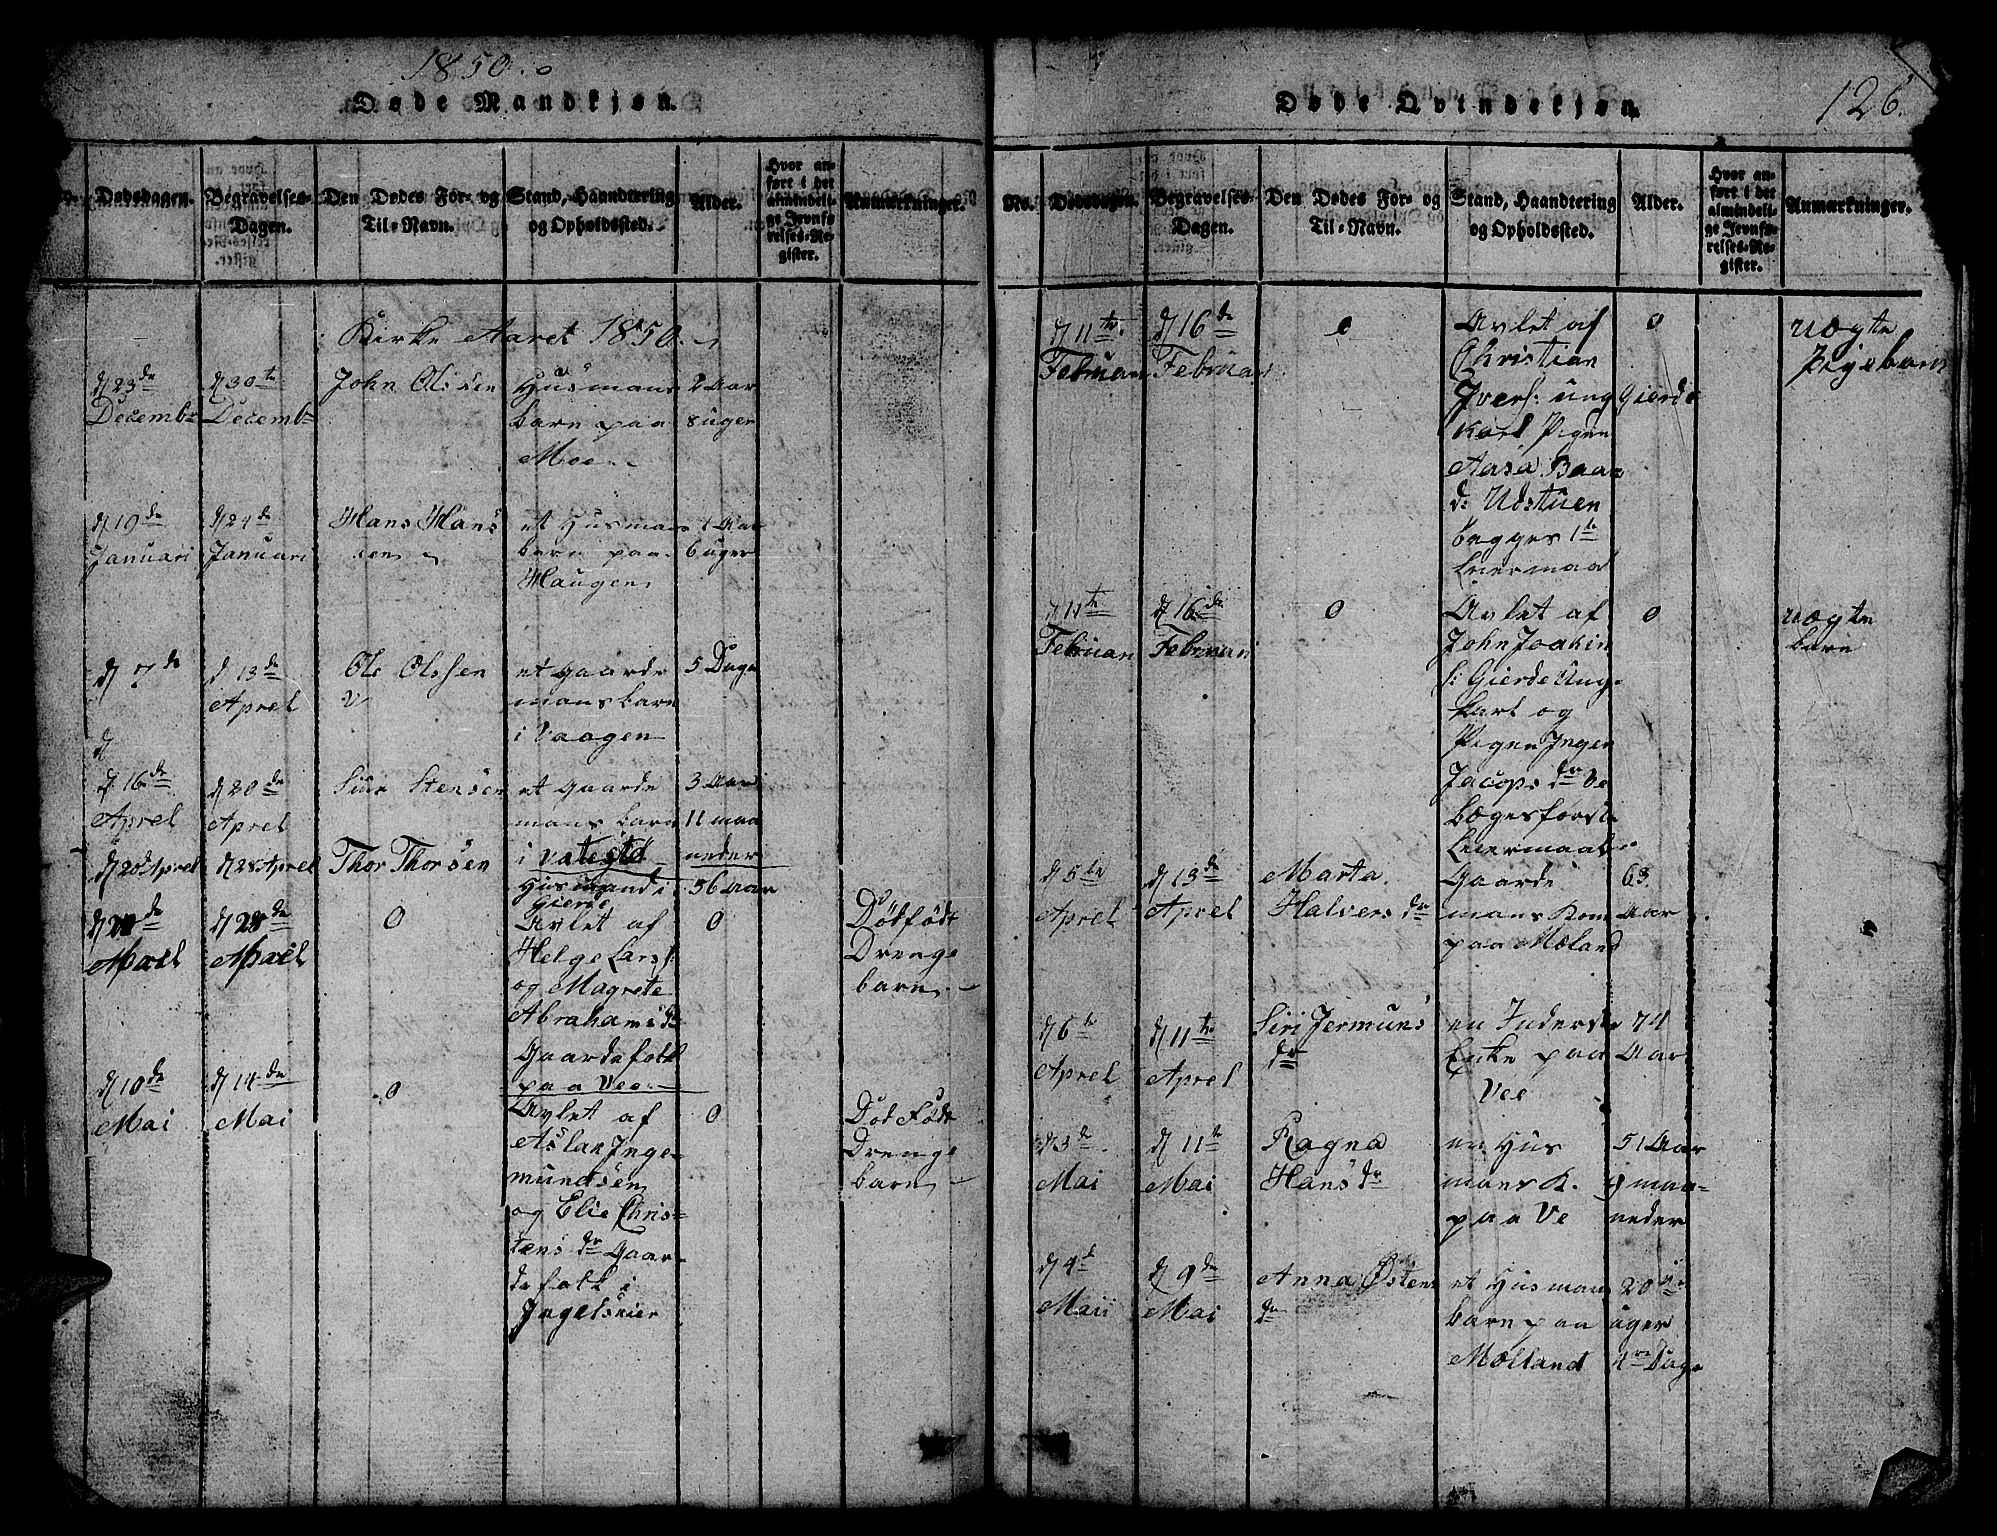 1850.
Døde Mandkjøn.
No.
Dødsdagen.
Begravelses-
Dagen.
Den Dødes For- og
Til-Navn.
Stand, Haandtering
og Opholdssted.
Alder.
Hvor an-
ført i det
almindeli-
ge Jevnfø-
relses-Re-
gister.
Anmærkninger.
Kirke Aaret 1850.
d 23de
Decembr
d 30te
Decembr
John Olssen
Husmans
barn paa
Moe
2 Aar
8 uger
d 19de
Januari
d 24de
Januari
Hans Hans
sen
et Husmans
barn paa
Haugen
1 Aar
6 uger
d 7de
d 13de
Aprel
Ole Olssen
et Gaarde
mans barn
i Vaagen
5 Dage
d
d 16de
Aprel
d 20de
Aprel
Siur Stensen
et Gaarde
mans barn
i Vatestd
3 Aar
11 maa
neder
d 20de Aprel
d 28 Aprel
Thor Thorsen
Husmand i
Gierde
56 Aar
d 28de
Aprel
0
Avlet af
Helge Larss:
og Magrete
Abrahams dr
Gaardefolk
paa Vee.
0
Dødfødt
Drenge
barn
d 10de
Mai
d 14de
Mai
0
Avlet af
Aslak Inge-
mundsen
og Elie Chris-
tens dr Gaar-
defolk i
Ingelsvier
0
Død Født
Drenge
barn
126.
Døde Qvindekjøn.
No.
Dødsdagen.
Begravelses-
Dagen.
Den Dødes For- og
Til-Navn.
Stand, Haandtering
og Opholdssted.
Alder.
Hvor an-
ført i det
almindeli-
ge Jevnfø-
relses-Re-
gister.
Anmærkninger.
d 11te
Februari
d 16de
Februari
0
Avlet af
Christian
Ivers: ung Gierde
Karl Pigen
Aasa Baar
d: Udstuen
begges 1te
Leiermaal
0
uægte
Pigebarn
d 11te
Februari
d 16de
Februari
0
Avlet af
John Joakim
s: Gierde Ung-
karl og
Pigen Ingen
Jacops dr Ve
bægesførste
Leiermaal
0
uægte
barn
d 5te
Aprel
d 13de
Aprel
Marta
Halvers dr
Gaarde
mans Kone
paa Mæland
63
Aar
d 6te
Aprel
d 11te
Aprel
Siri Jermuns
dr
en Inderste
Enke paa
Vee
74
Aar
d 3de
Mai
d 11te
Mai
Ragna
Hans dr
en Hus
mans K.
paa Ve
51 Aar
9 maa-
neder
d 4de
Maii
d 9de
Mai
Anna Østens
dr
et Husmans
barn paa
Mælland
20
uger
4re Dage